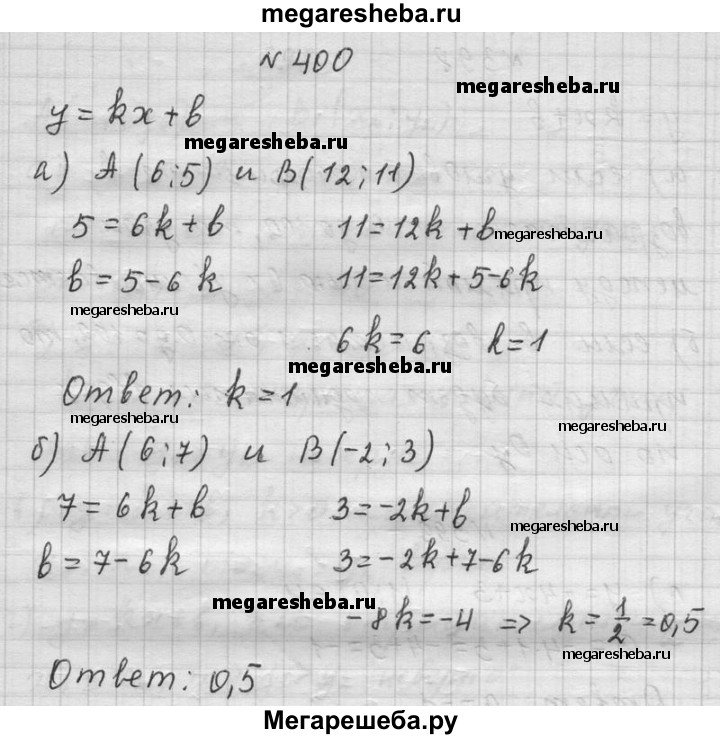 megaresheba.ru
№ 400
megaresheba.ru
y = kx + b
megaresheba.ru
а) A (6;5) и B(12;11)
5 = 6k + b 11 = 12k + b megaresheba.ru
b = 5 - 6k 11 = 12k + 5 - 6k
megaresheba.ru
6k = 6 k = 1
megaresheba.ru
Ответ: k = 1
megaresheba.ru megaresheba.ru
б) A (6;7) и B(-2;3)
7 = 6k + b 3 = -2k + b
megaresheba.ru
b = 7 - 6k 3 = -2k + 7 - 6k
megaresheba.ru
-8k = -4 => k = 1/2 = 0,5
megaresheba.ru
Ответ: 0,5
Мегарешеба.ру